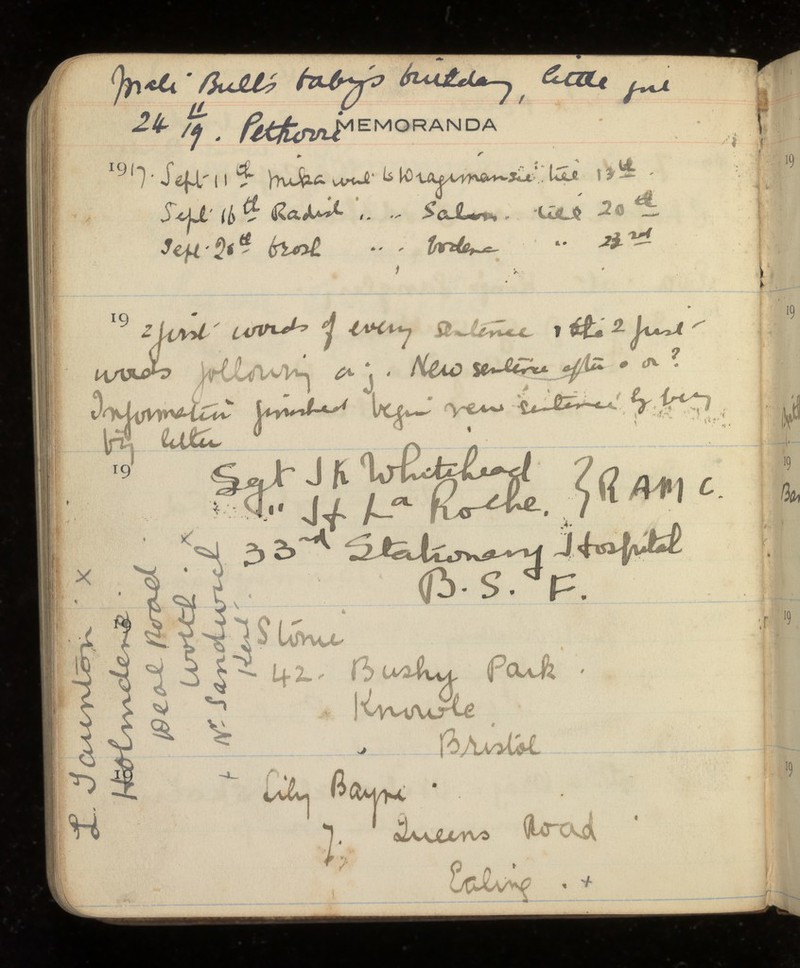 Bull's baby's birthday, little girl
24 11/19. Petkovic
MEMORANDA
1917. Sept 11th Mika went to Dragomansie till 13th.
Sept 16th " .. Salon. till 20th
Sept. 20th .. . Vodena " 22nd
19 2 first words of every sentence & the 2 first
words following a ; . New sentence after . or ?
Information finished begin new sentence by very
big letter
19
Sgt J K Whitehead } R A M C.
" H La Roche.
33rd Stationary Hospital
B. S. F.
19
Stone
42. Bushy Park.
Knowle
Bristol
Lily Bayne
7. Queens Road
Ealing . +
L. Taunton x
Holmdene.
Deal Road
Worth. x
+ Nr Sandwich
Kent.
19
19
19
19
19